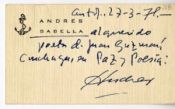 Antof. 27-3-78.-
ANDRES
SABELLA al querido
poeta d. Juan Guzmán
con abrazo en Paz y Poesía:
Andrés